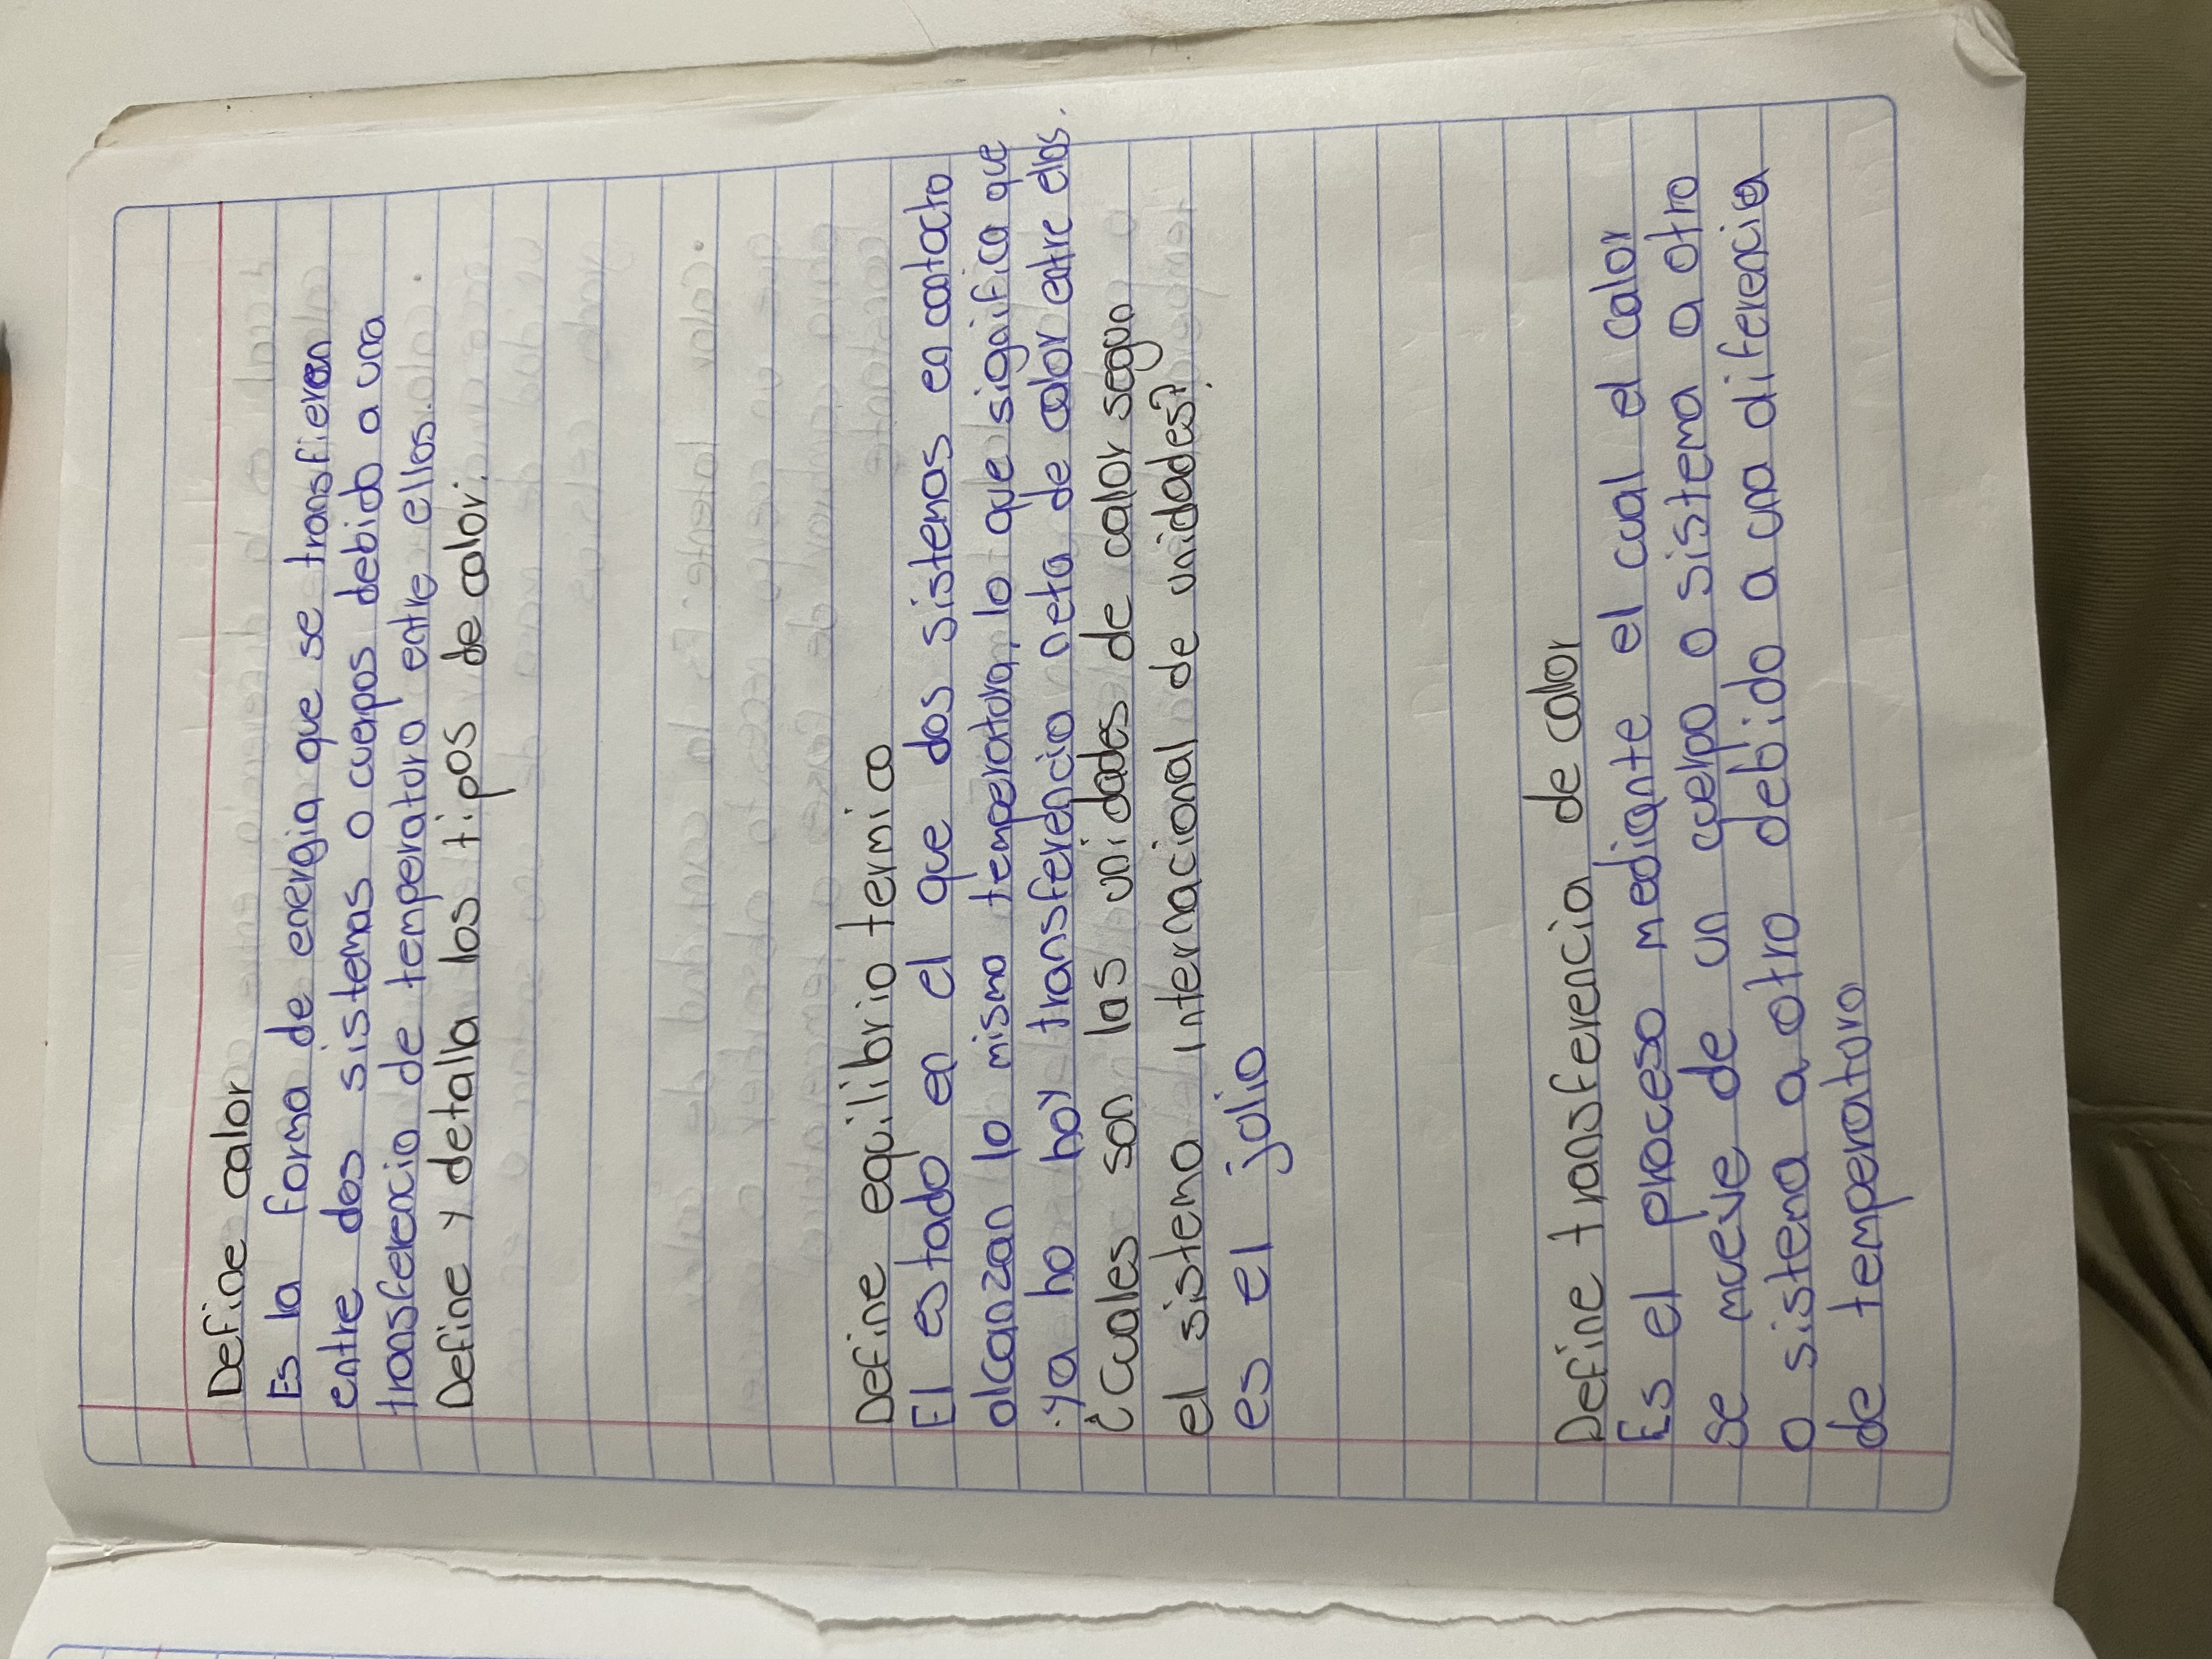 Define calor
Es la forma de energia que se transfieren
entre dos sistemas o cuerpos debido a una
transferencia de temperatura entre ellos.
Define y detalla los tipos de calor.
Define equilibrio termico
El estado en el que dos sistemas en contacto
alcanzan la misma temperatura, lo que significa que
ya no hay transferencia neta de calor entre ellos.
¿Cuales son las unidades de calor segun
el sistema internacional de unidades?
es el julio
Define transferencia de calor
Es el proceso mediante el cual el calor
se mueve de un cuerpo o sistema a otro
o sistema a otro debido a una diferencia
de temperatura